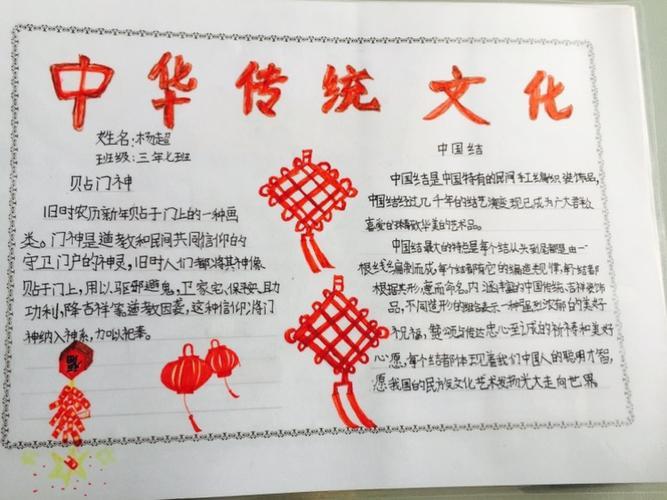 中华传统文化
姓名:杨超
班级:三年七班
贴门神
旧时农历新年贴于门上的一种画
类。门神是道教和民间共同信仰的
守卫门户的神灵,旧时人们都将其神像
贴于门上,用以驱邪避鬼,卫家宅,保平安,且助
功利,降吉祥等,道教因袭,这种信仰,将门
神纳入神系,加以祀奉。
中国结
中国结是中国特有的民间手工编织装饰品,
中国结经过几千年的结艺演变,现已成为广大群众
喜爱的精致华美的艺术品。
中国结最大的特点是每个结从头到尾都是由一
根丝线编制而成,每个结都有它的编造规律,每个结都
根据其形,意而命名,内涵丰富的中国传统,吉祥装饰
品,不同造形的组结表示一种强烈浓郁的美好
祝福,赞颂与传达衷心至诚的祈祷和美好
心愿,每个结都体现着我们中国人的聪明才智,
愿我国的民族文化艺术发扬光大走向世界
福